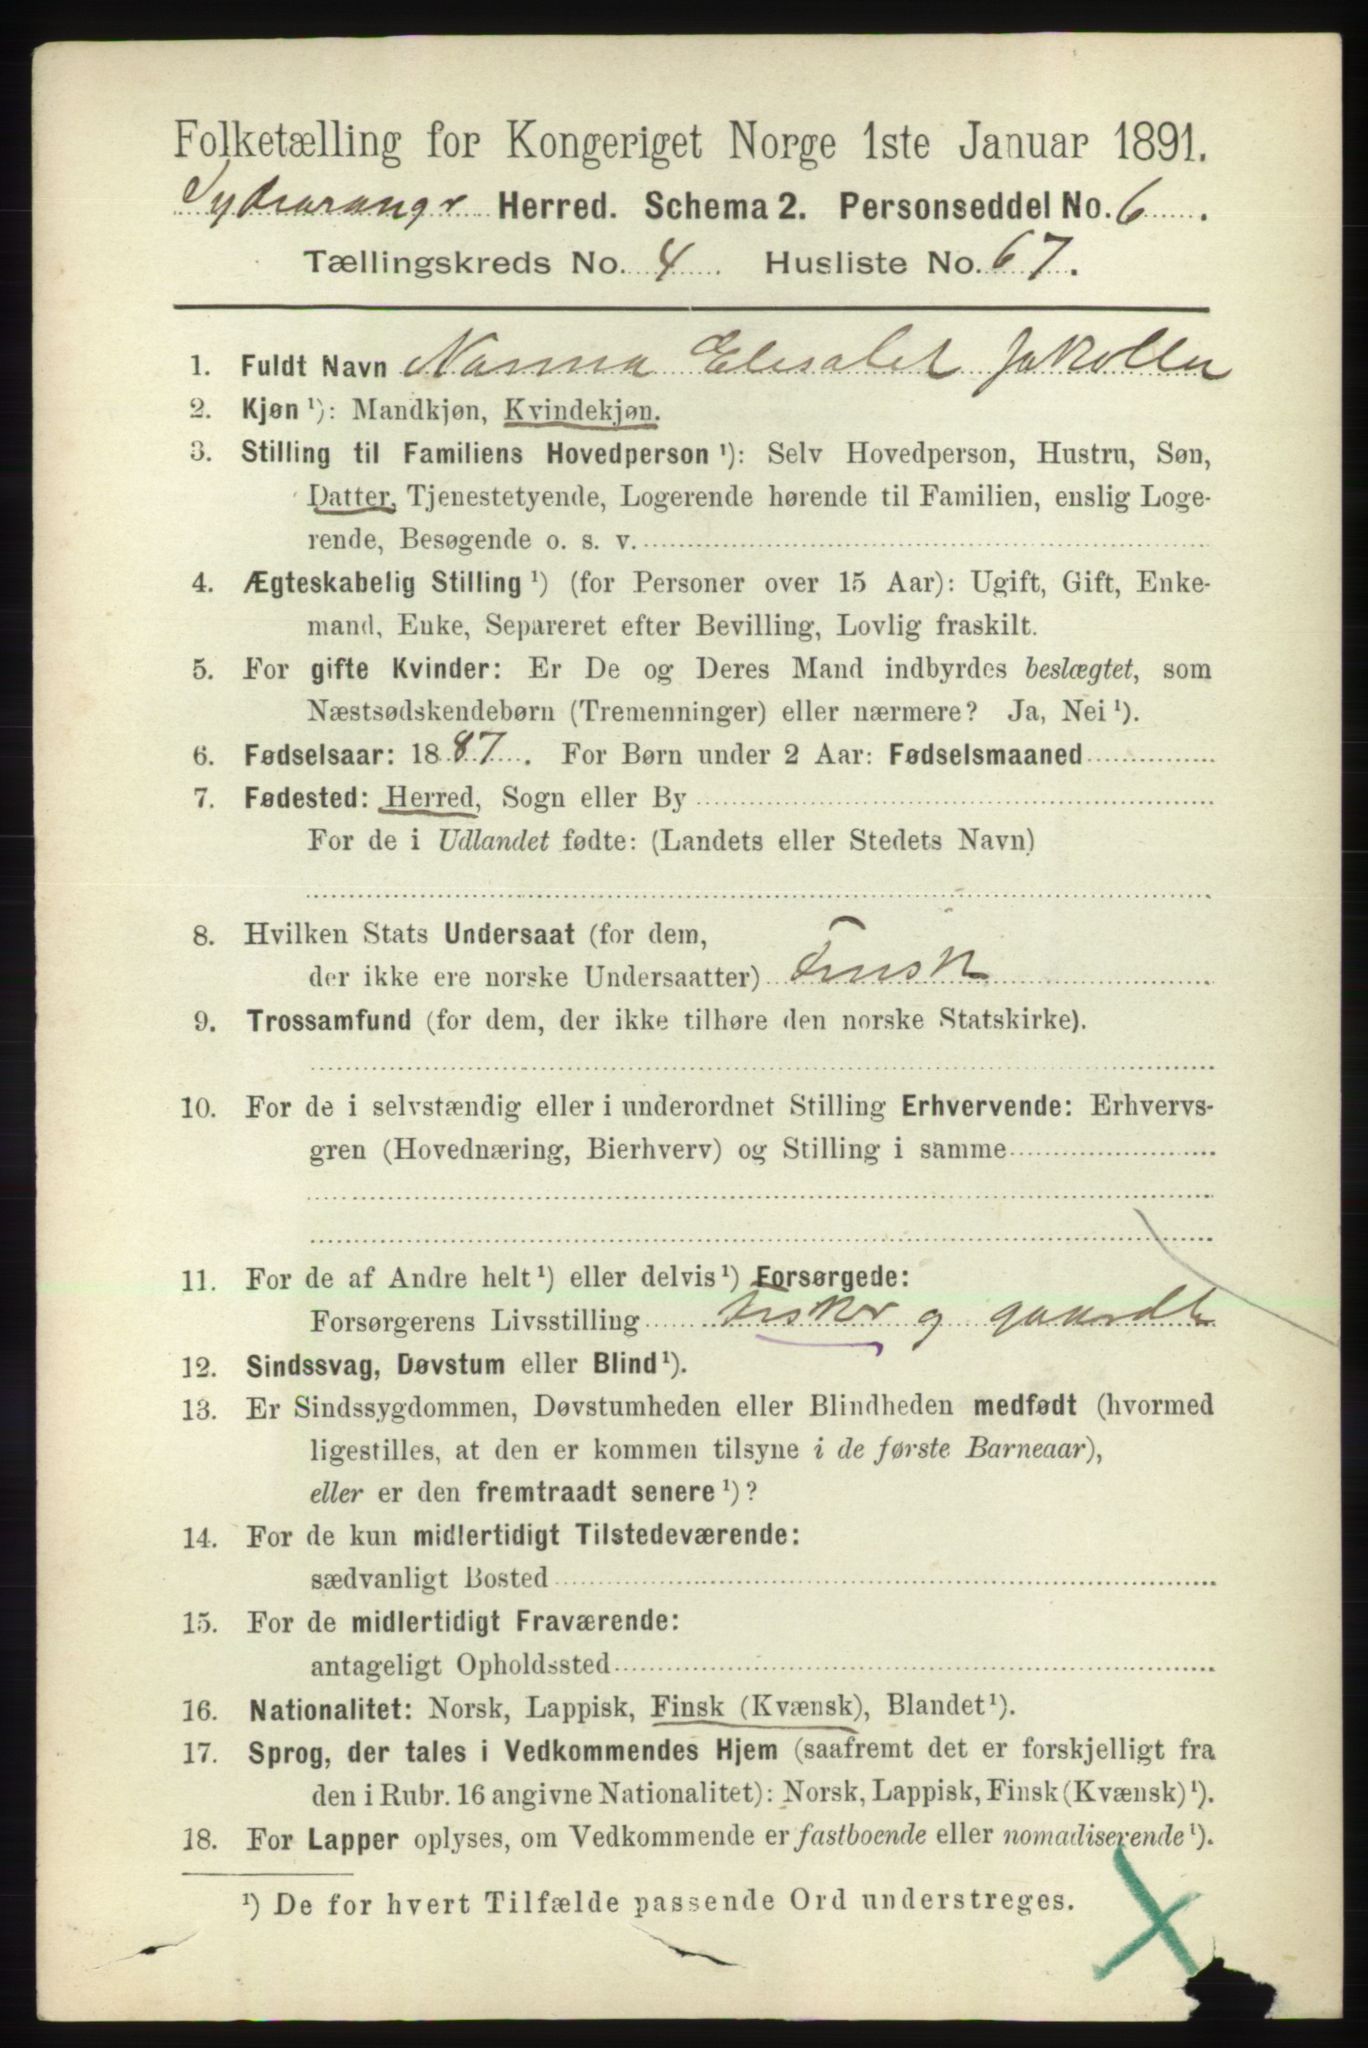 Folketælling for Kongeriget Norge 1ste Januar 1891.
Sydvaranger Herred. Schema 2. Personseddel No. 6.
Tællingskreds No. 4 Husliste No. 67.
1. Fuldt Navn Nanna Elisabet
2. Kjøn ¹): Mandkjøn, Kvindekjøn.
3. Stilling til Familiens Hovedperson ¹): Selv Hovedperson, Hustru, Søn,
Datter, Tjenestetyende, Logerende hørende til Familien, enslig Loge-
rende, Besøgende o. s. v.
4. Ægteskabelig Stilling ¹) (for Personer over 15 Aar): Ugift, Gift, Enke-
mand, Enke, Separeret efter Bevilling, Lovlig fraskilt.
5. For gifte Kvinder: Er De og Deres Mand indbyrdes beslægtet, som
Næstsødskendebørn (Tremenninger) eller nærmere? Ja, Nei ¹).
6. Fødselsaar: 1887. For Børn under 2 Aar: Fødselsmaaned
7. Fødested: Herred, Sogn eller By
For de i Udlandet fødte: (Landets eller Stedets Navn)
8. Hvilken Stats Undersaat (for dem,
der ikke ere norske Undersaatter) Finsk
9. Trossamfund (for dem, der ikke tilhøre den norske Statskirke).
10. For de i selvstændig eller i underordnet Stilling Erhvervende: Erhvervs-
gren (Hovednæring, Bierhverv) og Stilling i samme
11. For de af Andre helt ¹) eller delvis ¹) Forsørgede:
Forsørgerens Livsstilling fisker og gaardb
12. Sindssvag, Døvstum eller Blind ¹).
13. Er Sindssygdommen, Døvstumheden eller Blindheden medfødt (hvormed
ligestilles, at den er kommen tilsyne i de første Barneaar),
eller er den fremtraadt senere ¹)?
14. For de kun midlertidigt Tilstedeværende:
sædvanligt Bosted
15. For de midlertidigt Fraværende:
antageligt Opholdssted
16. Nationalitet: Norsk, Lappisk, Finsk (Kvænsk), Blandet ¹).
17. Sprog, der tales i Vedkommendes Hjem (saafremt det er forskjelligt fra
den i Rubr. 16 angivne Nationalitet): Norsk, Lappisk, Finsk (Kvænsk) ¹).
18. For Lapper oplyses, om Vedkommende er fastboende eller nomadiserende ¹).
¹) De for hvert Tilfælde passende Ord understreges.